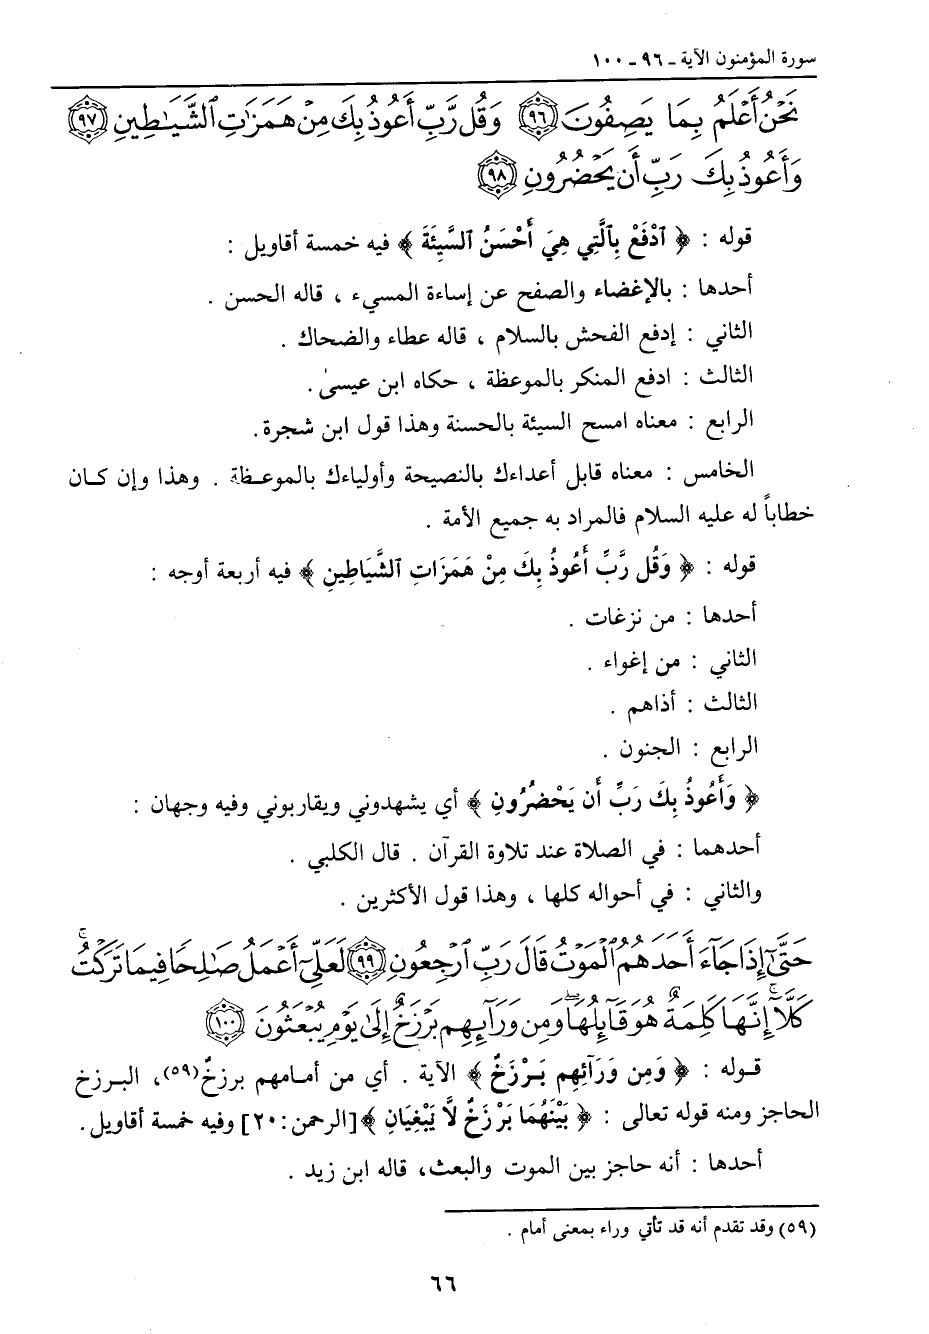 سورة المؤمنون الآية ـ ٩٦ ـ ١٠٠
نَحْنُ أَعْلَمُ بِمَا يَصِفُونَ ٩٦ وَقُل رَّبِّ أَعُوذُ بِكَ مِنْ هَمَزَٰتِ ٱلشَّيَٰطِينِ ٩٧
وَأَعُوذُ بِكَ رَبِّ أَن يَحْضُرُونِ ٩٨
قوله : ﴿ ٱدْفَعْ بِٱلَّتِي هِيَ أَحْسَنُ السَّيِّئَةَ ﴾ فيه خمسة أقاويل :
أحدها : بالإغضاء والصفح عن إساءة المسيء ، قاله الحسن .
الثاني : إدفع الفحش بالسلام ، قاله عطاء والضحاك .
الثالث : ادفع المنكر بالموعظة ، حكاه ابن عيسىٰ .
الرابع : معناه امسح السيئة بالحسنة وهذا قول ابن شجرة .
الخامس : معناه قابل أعداءك بالنصيحة وأولياءك بالموعظة . وهذا وإن كان
خطاباً له عليه السلام فالمراد به جميع الأمة .
قوله : ﴿ وَقُل رَّبِّ أَعُوذُ بِكَ مِنْ هَمَزَاتِ ٱلشَّيَاطِينِ ﴾ فيه أربعة أوجه :
أحدها : من نزغات .
الثاني : من إغواء .
الثالث : أذاهم .
الرابع : الجنون .
﴿ وَأَعُوذُ بِكَ رَبِّ أَن يَحْضُرُونِ ﴾ أي يشهدوني ويقاربوني وفيه وجهان :
أحدهما : في الصلاة عند تلاوة القرآن . قال الكلبي .
والثاني : في أحواله كلها ، وهذا قول الأكثرين .
حَتَّىٰٓ إِذَا جَآءَ أَحَدَهُمُ ٱلْمَوْتُ قَالَ رَبِّ ٱرْجِعُونِ ٩٩ لَعَلِّيٓ أَعْمَلُ صَٰلِحًا فِيمَا تَرَكْتُ ۚ
كَلَّآ ۚ إِنَّهَا كَلِمَةٌ هُوَ قَآئِلُهَا ۖ وَمِن وَرَآئِهِم بَرْزَخٌ إِلَىٰ يَوْمِ يُبْعَثُونَ ١٠٠
قوله : ﴿ وَمِن وَرَآئِهِم بَرْزَخٌ ﴾ الآية . أي من أمامهم برزخٌ(٥٩)، البرزخ
الحاجز ومنه قوله تعالى : ﴿ بَيْنَهُمَا بَرْزَخٌ لَّا يَبْغِيَانِ ﴾[الرحمن:٢٠] وفيه خمسة أقاويل .
أحدها : أنه حاجز بين الموت والبعث، قاله ابن زيد .
(٥٩) وقد تقدم أنه قد تأتي وراء بمعنى أمام .
٦٦